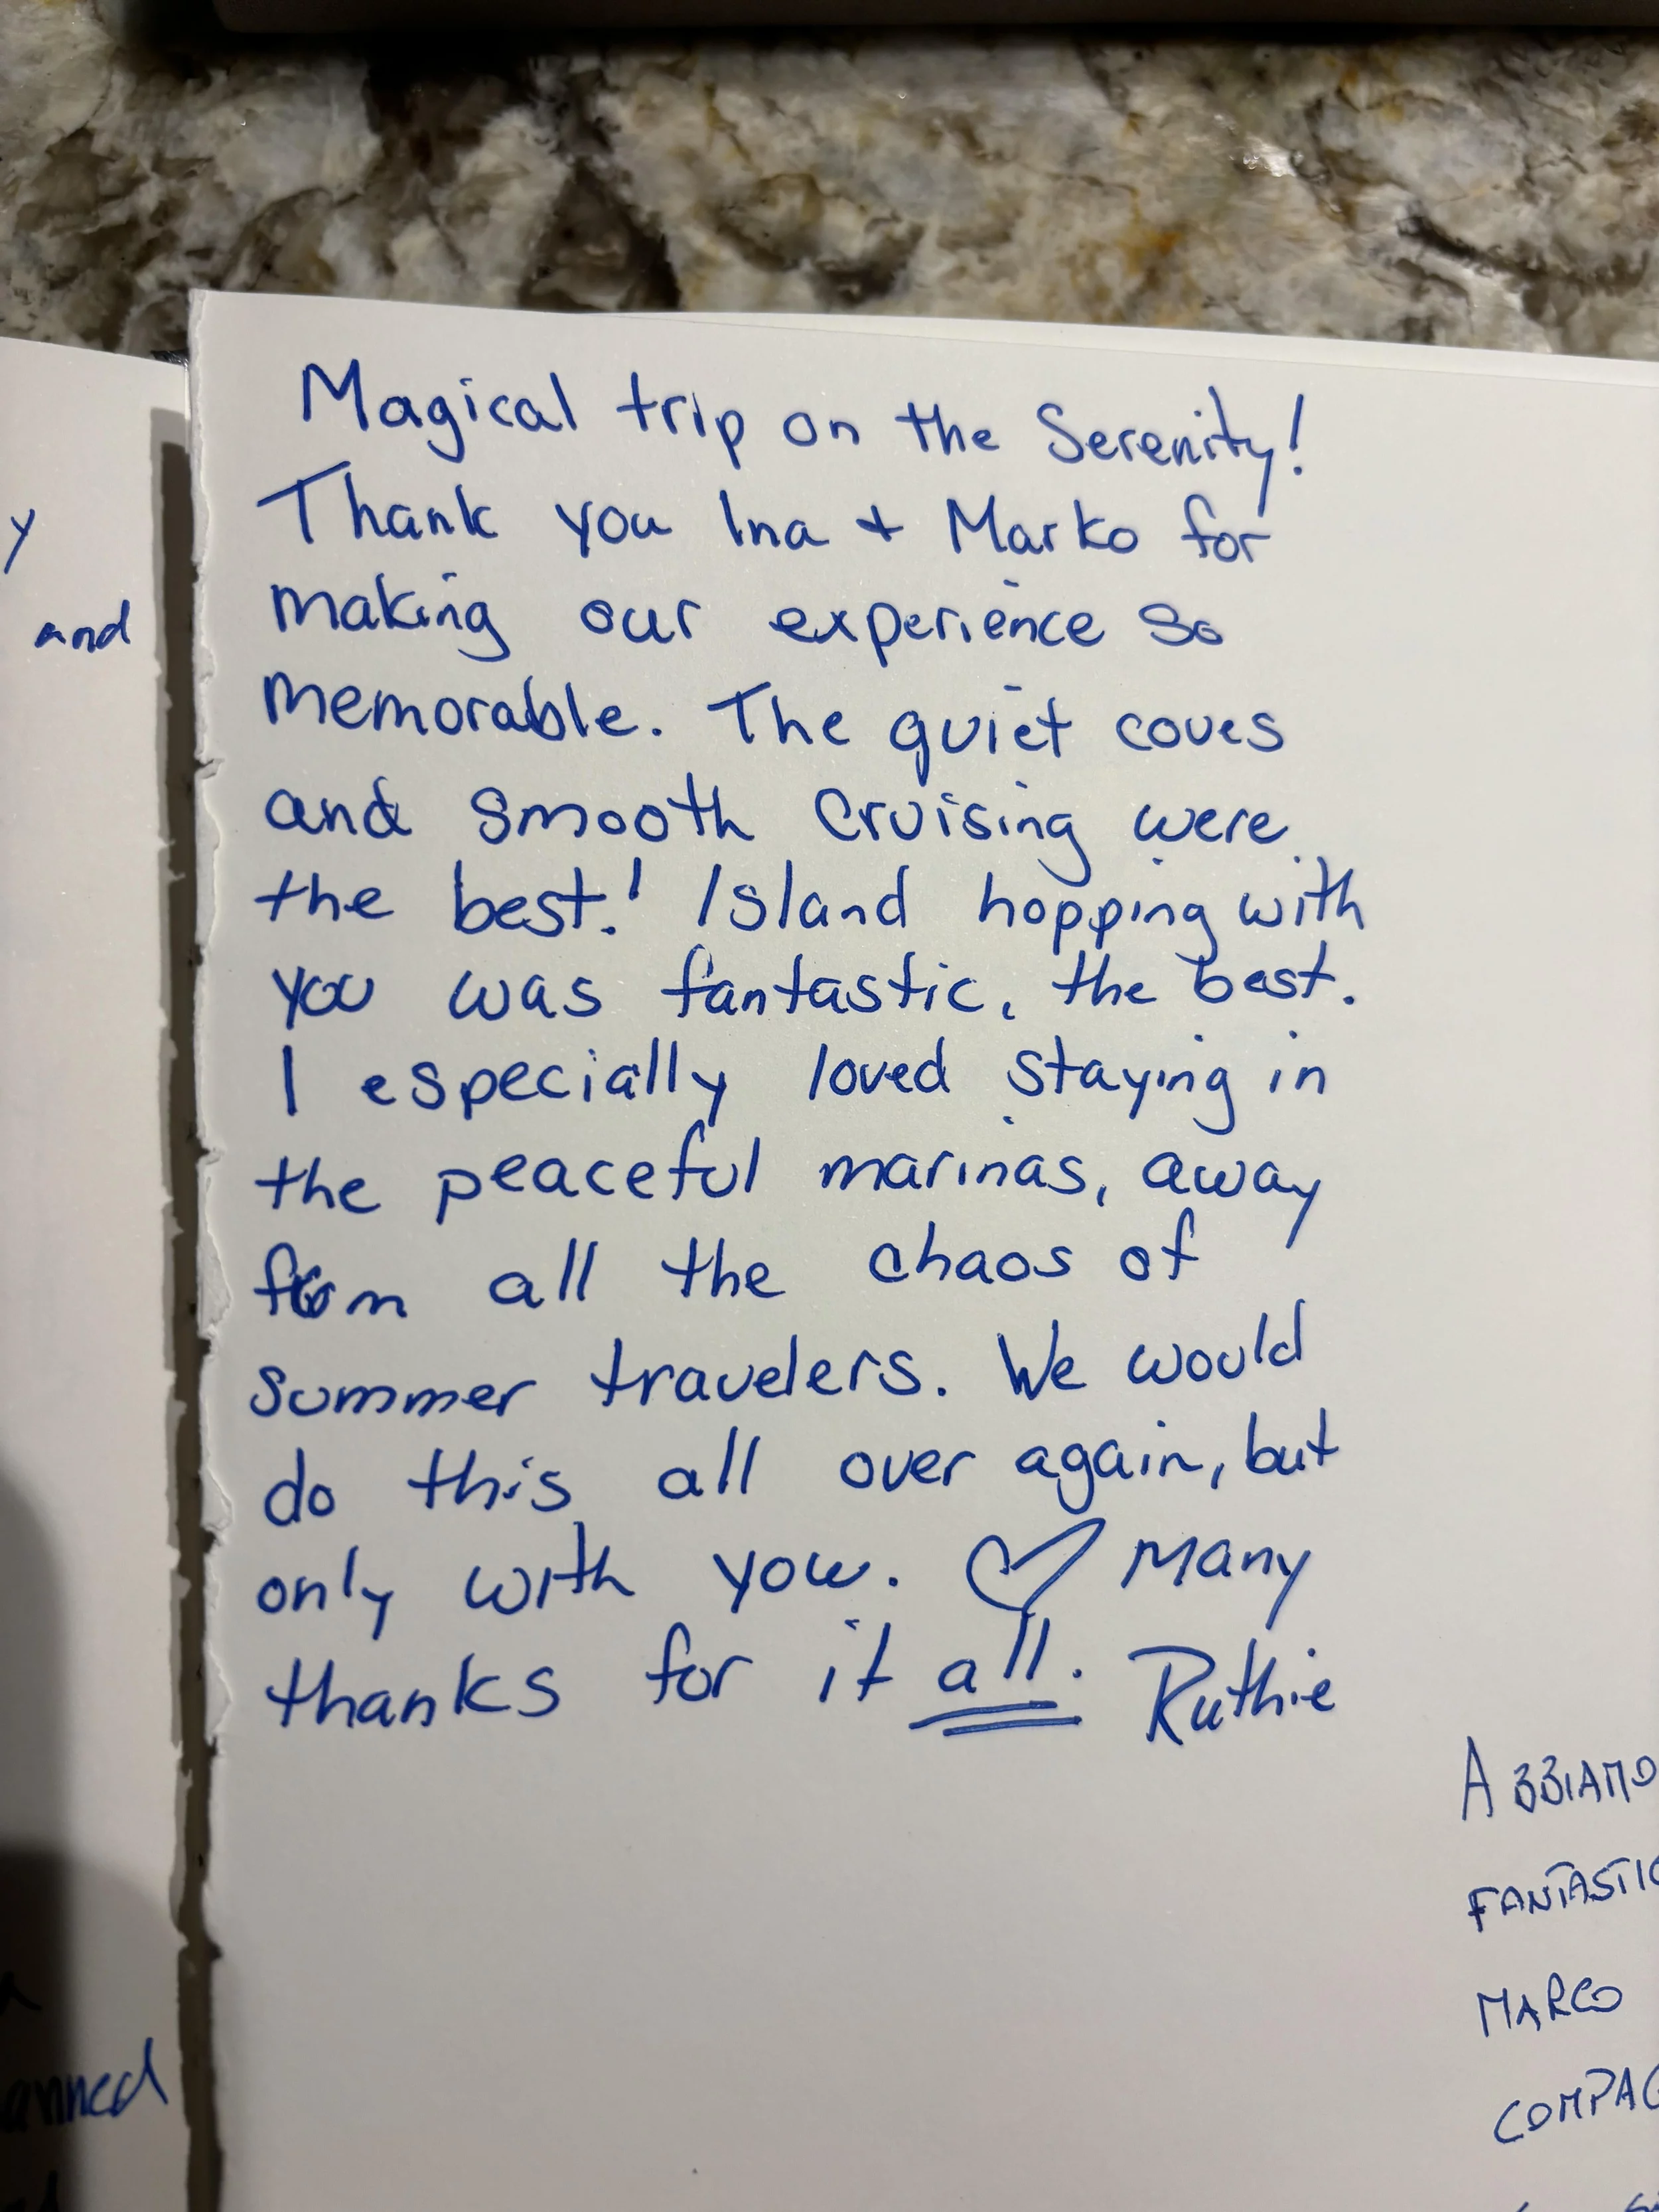 Magical trip on the Serenity!
Thank you Ina + Marko for
making our experience so
memorable. The quiet coves
and smooth cruising were
the best! Island hopping with
you was fantastic, the best.
I especially loved staying in
the peaceful marinas, away
from all the chaos of
summer travelers. We would
do this all over again, but
only with you. ♡ Many
thanks for it all. Ruthie
y
and
anned
ABBIAMO
FANTASTIC
MARCO
COMPAG